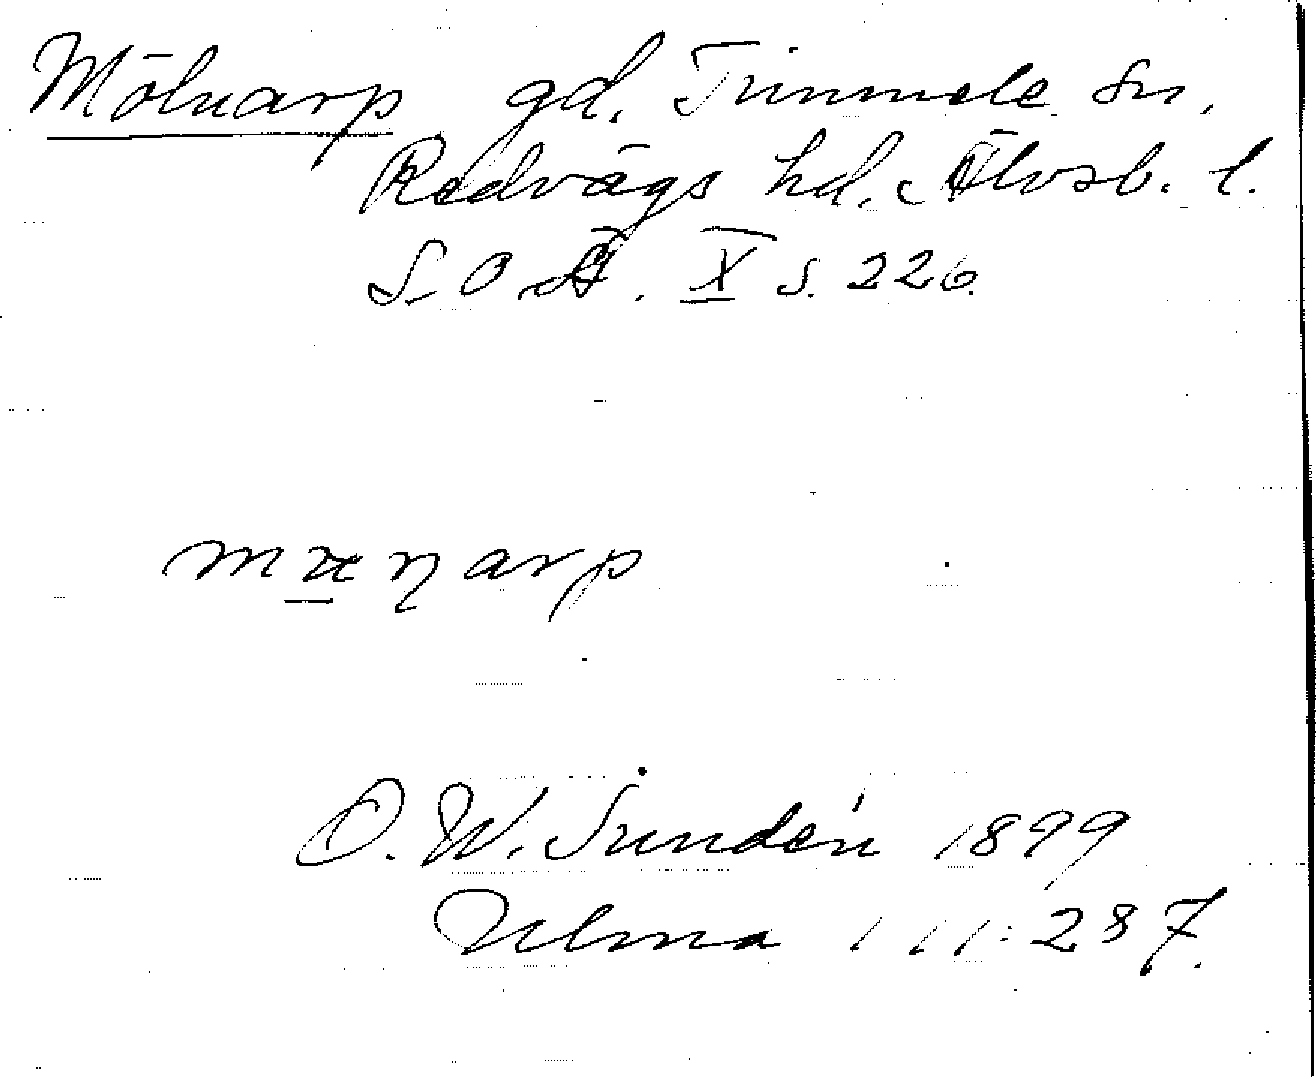 Mölnarp gd. Timmele sn.
Redvägs hd. Älvsb. l.
S. O. Ä. X s. 226.
arp
D. W. Sundén 1899
Ulma 111:287.